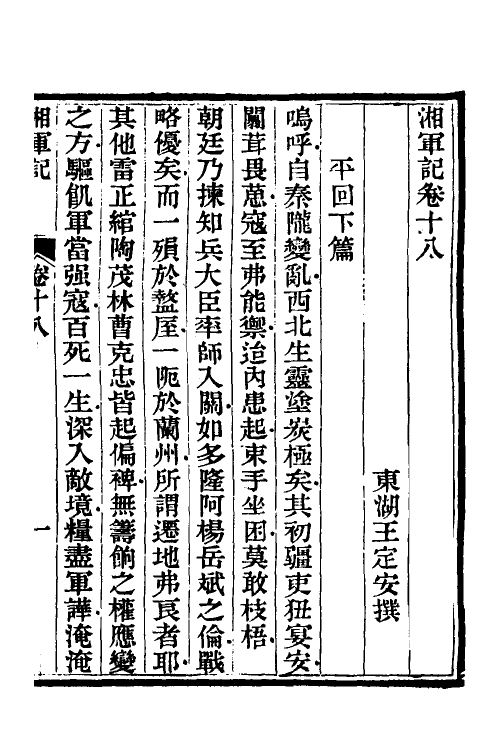 湘軍記卷十八
東湖王定安撰
平回下篇
嗚呼自秦隴變亂西北生靈塗炭極矣其初疆吏狃宴安
闒茸畏葸寇至弗能禦迨內患起束手坐困莫敢枝梧
朝廷乃揀知兵大臣率師入關如多隆阿楊岳斌之倫戰
略優矣而一殞於盩厔一阨於蘭州所謂遷地弗良者耶
其他雷正綰陶茂林曹克忠皆起偏裨無籌餉之權應變
之方驅飢軍當强寇百死一生深入敵境糧盡軍譁淹淹
湘軍記
卷十八
一